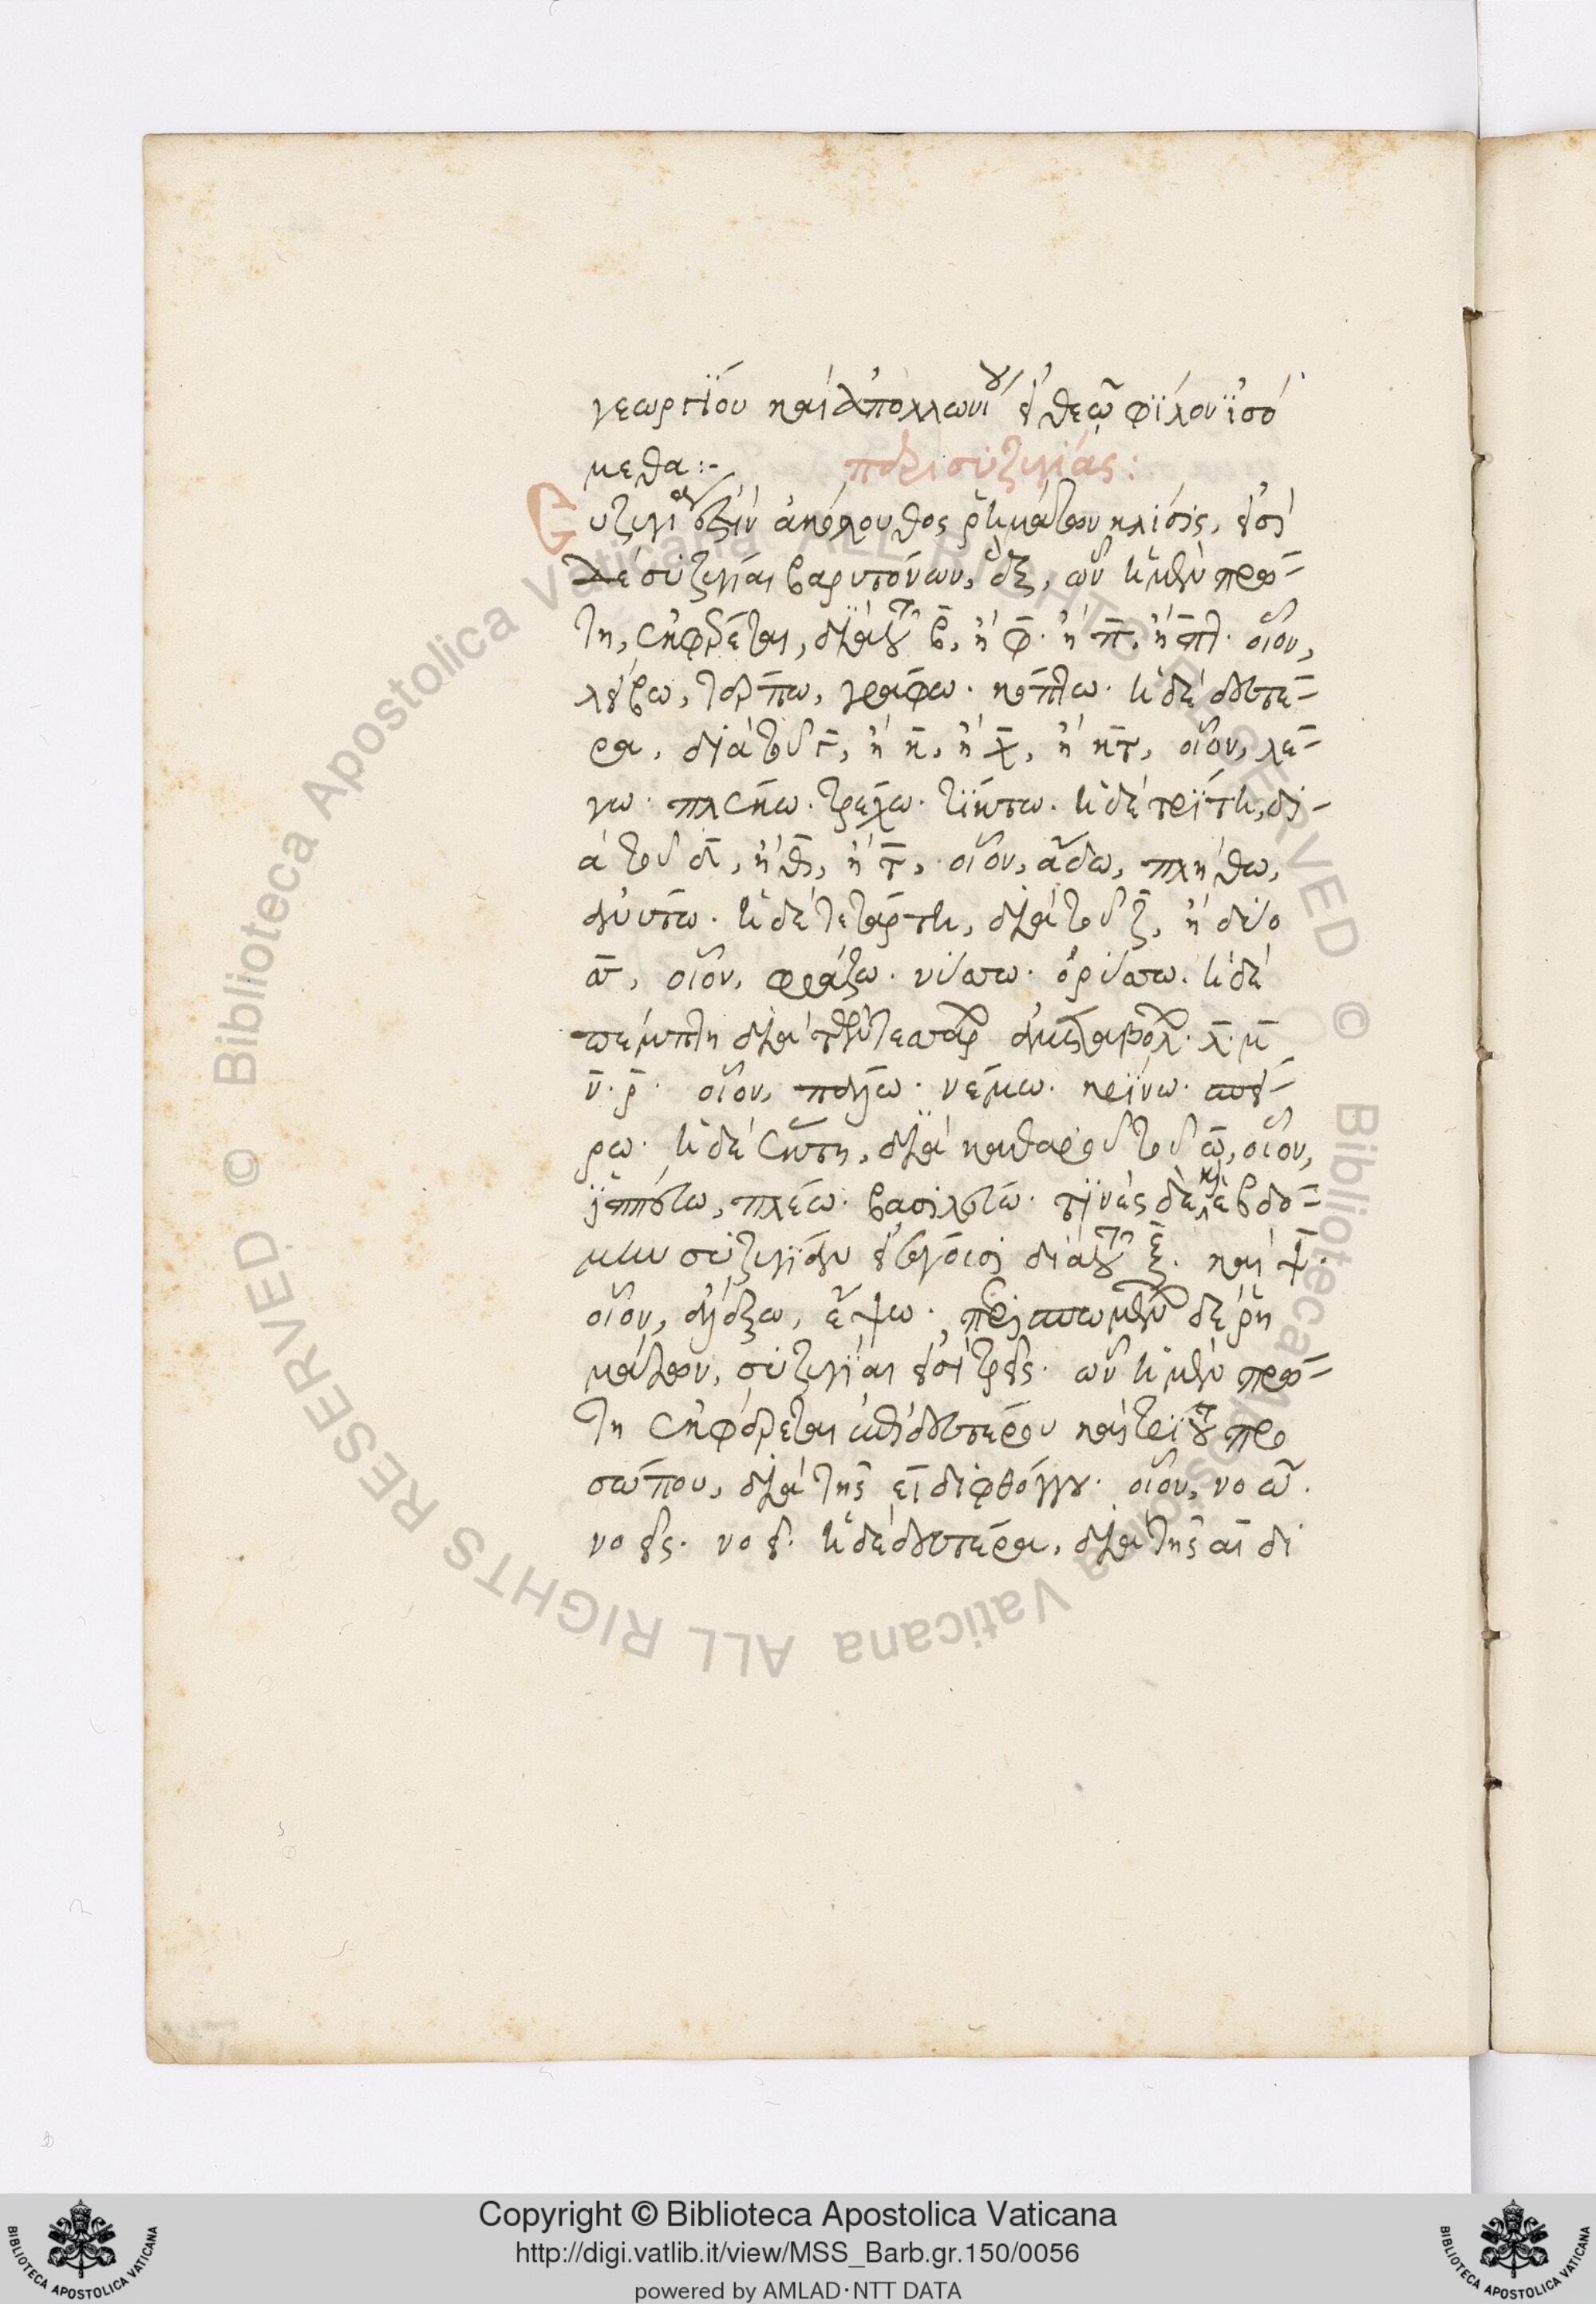 γεωργΐου καὶ ἀπολλωνίου ἐν θεῷ φΐλου ἰσό
μεθα:-
περὶ συζυγίας:
Συζυγία ἐστὶν ἀκόλουθος ῥημάτων κλίσις, εἰσὶ
δὲ συζυγίαι βαρυτόνων, ἓξ, ὧν ἡ μὲν πρώ-
τη, ἐκφέρεται, διὰ τοῦ β̄, ἢ φ̄. ἢ π̄, ἢ π̄τ̄. οἷον,
λείβω, τέρπω, γράφω. κόπτω. ἡ δὲ δευτέ-
ρα, διὰ τοῦ γ̄, ἢ κ̄, ἢ χ̄, ἢ κ̄τ̄, οἷον, λέ-
γω. πλέκω. τρέχω. τΐκτω. ἡ δὲ τρΐτη, δι-
ὰ τοῦ δ̄, ἢ θ̄, ἢ τ̄, οἷον, ᾄδω, πλήθω,
ἀνύτω. ἡ δὲ τετάρτη, διὰ τοῦ ζ̄, ἢ δύο
σ̄σ̄, οἷον, φράζω. νύσσω. ὀρύσσω. ἡ δὲ
πέμπτη διὰ τῶν τεσσάρων ἀμεταβόλων. λ̄. μ̄
ν̄. ρ̄. οἷον, πάλλω. νέμω. κρΐνω. σπεί-
ρω. ἡ δὲ ἕκτη, διὰ καθαροῦ τοῦ ω̄, οἷον,
ἱππεύω, πλέω. βασιλεύω. τινὲς δὲ καὶ ἑβδό-
μην συζυγΐαν εἰσάγουσι διὰ τοῦ ξ̄. καὶ ψ̄.
οἷον, ἀλέξω, ἕψω. περισπωμένων δὲ ῥη
μάτων, συζυγΐαι εἰσὶ τρεῖς. ὧν ἡ μὲν πρώ-
τη ἐκφέρεται ἐπὶ δευτέρου καὶ τρΐτου προ
σώπου, διὰ τῆς ει διφθόγγου. οἷον, νοῶ.
νοεῖς. νοεῖ. ἡ δὲ δευτέρα, διὰ τῆς αι δι
Copyright © Biblioteca Apostolica Vaticana
http://digi.vatlib.it/view/MSS_Barb.gr.150/0056
powered by AMLAD·NTT DATA